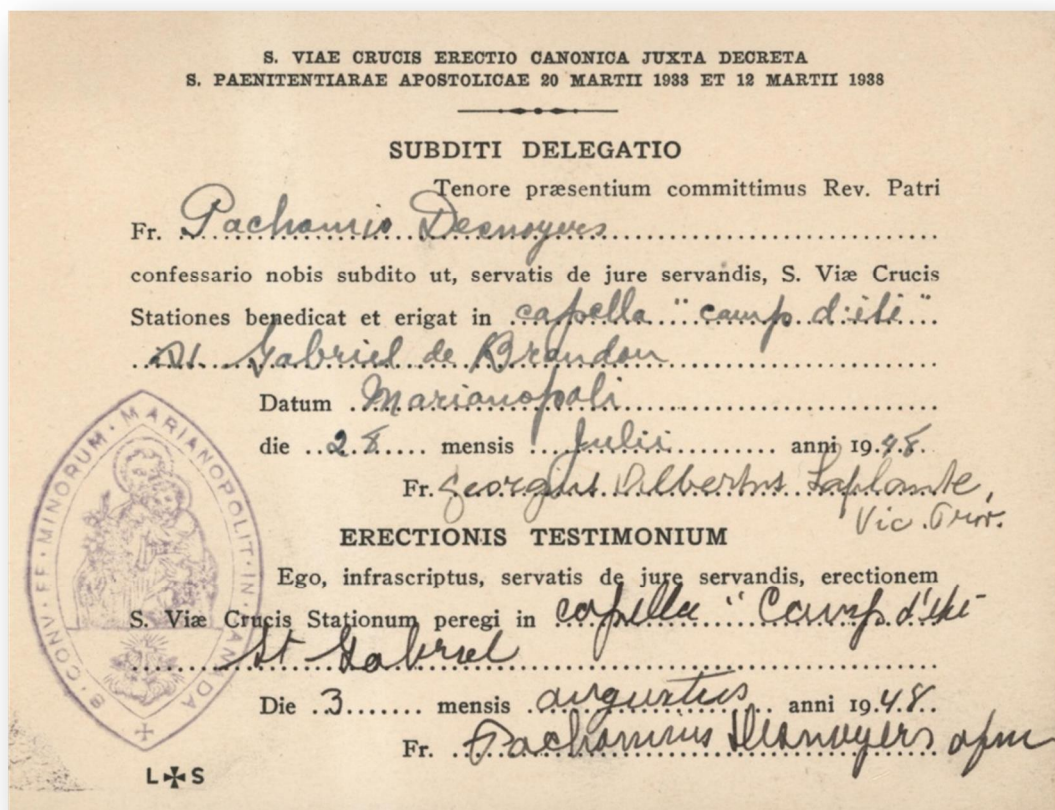 S. VIAE CRUCIS ERECTIO CANONICA JUXTA DECRETA
S. PAENITENTIARAE APOSTOLICAE 20 MARTII 1933 ET 12 MARTII 1938
SUBDITI DELEGATIO
Tenore præsentium committimus Rev. Patri
Fr. Pachomio Desnoyers
confessario nobis subdito ut, servatis de jure servandis, S. Viæ Crucis
Stationes benedicat et erigat in capella "camp d'été"
St. Gabriel de Brandon
Datum Marianopoli
die 28 mensis Julii anni 1948
Fr. Georgius Albertus Laplante,
Vic. Prov.
ERECTIONIS TESTIMONIUM
Ego, infrascriptus, servatis de jure servandis, erectionem
S. Viæ Crucis Stationum peregi in capella "Camp d'été
St Gabriel
Die 3 mensis augustus anni 1948
Fr. Pachomius Desnoyers ofm
CONV · FF · MINORUM · MARIANOPOLIT · IN · CANADA
L ✠ S